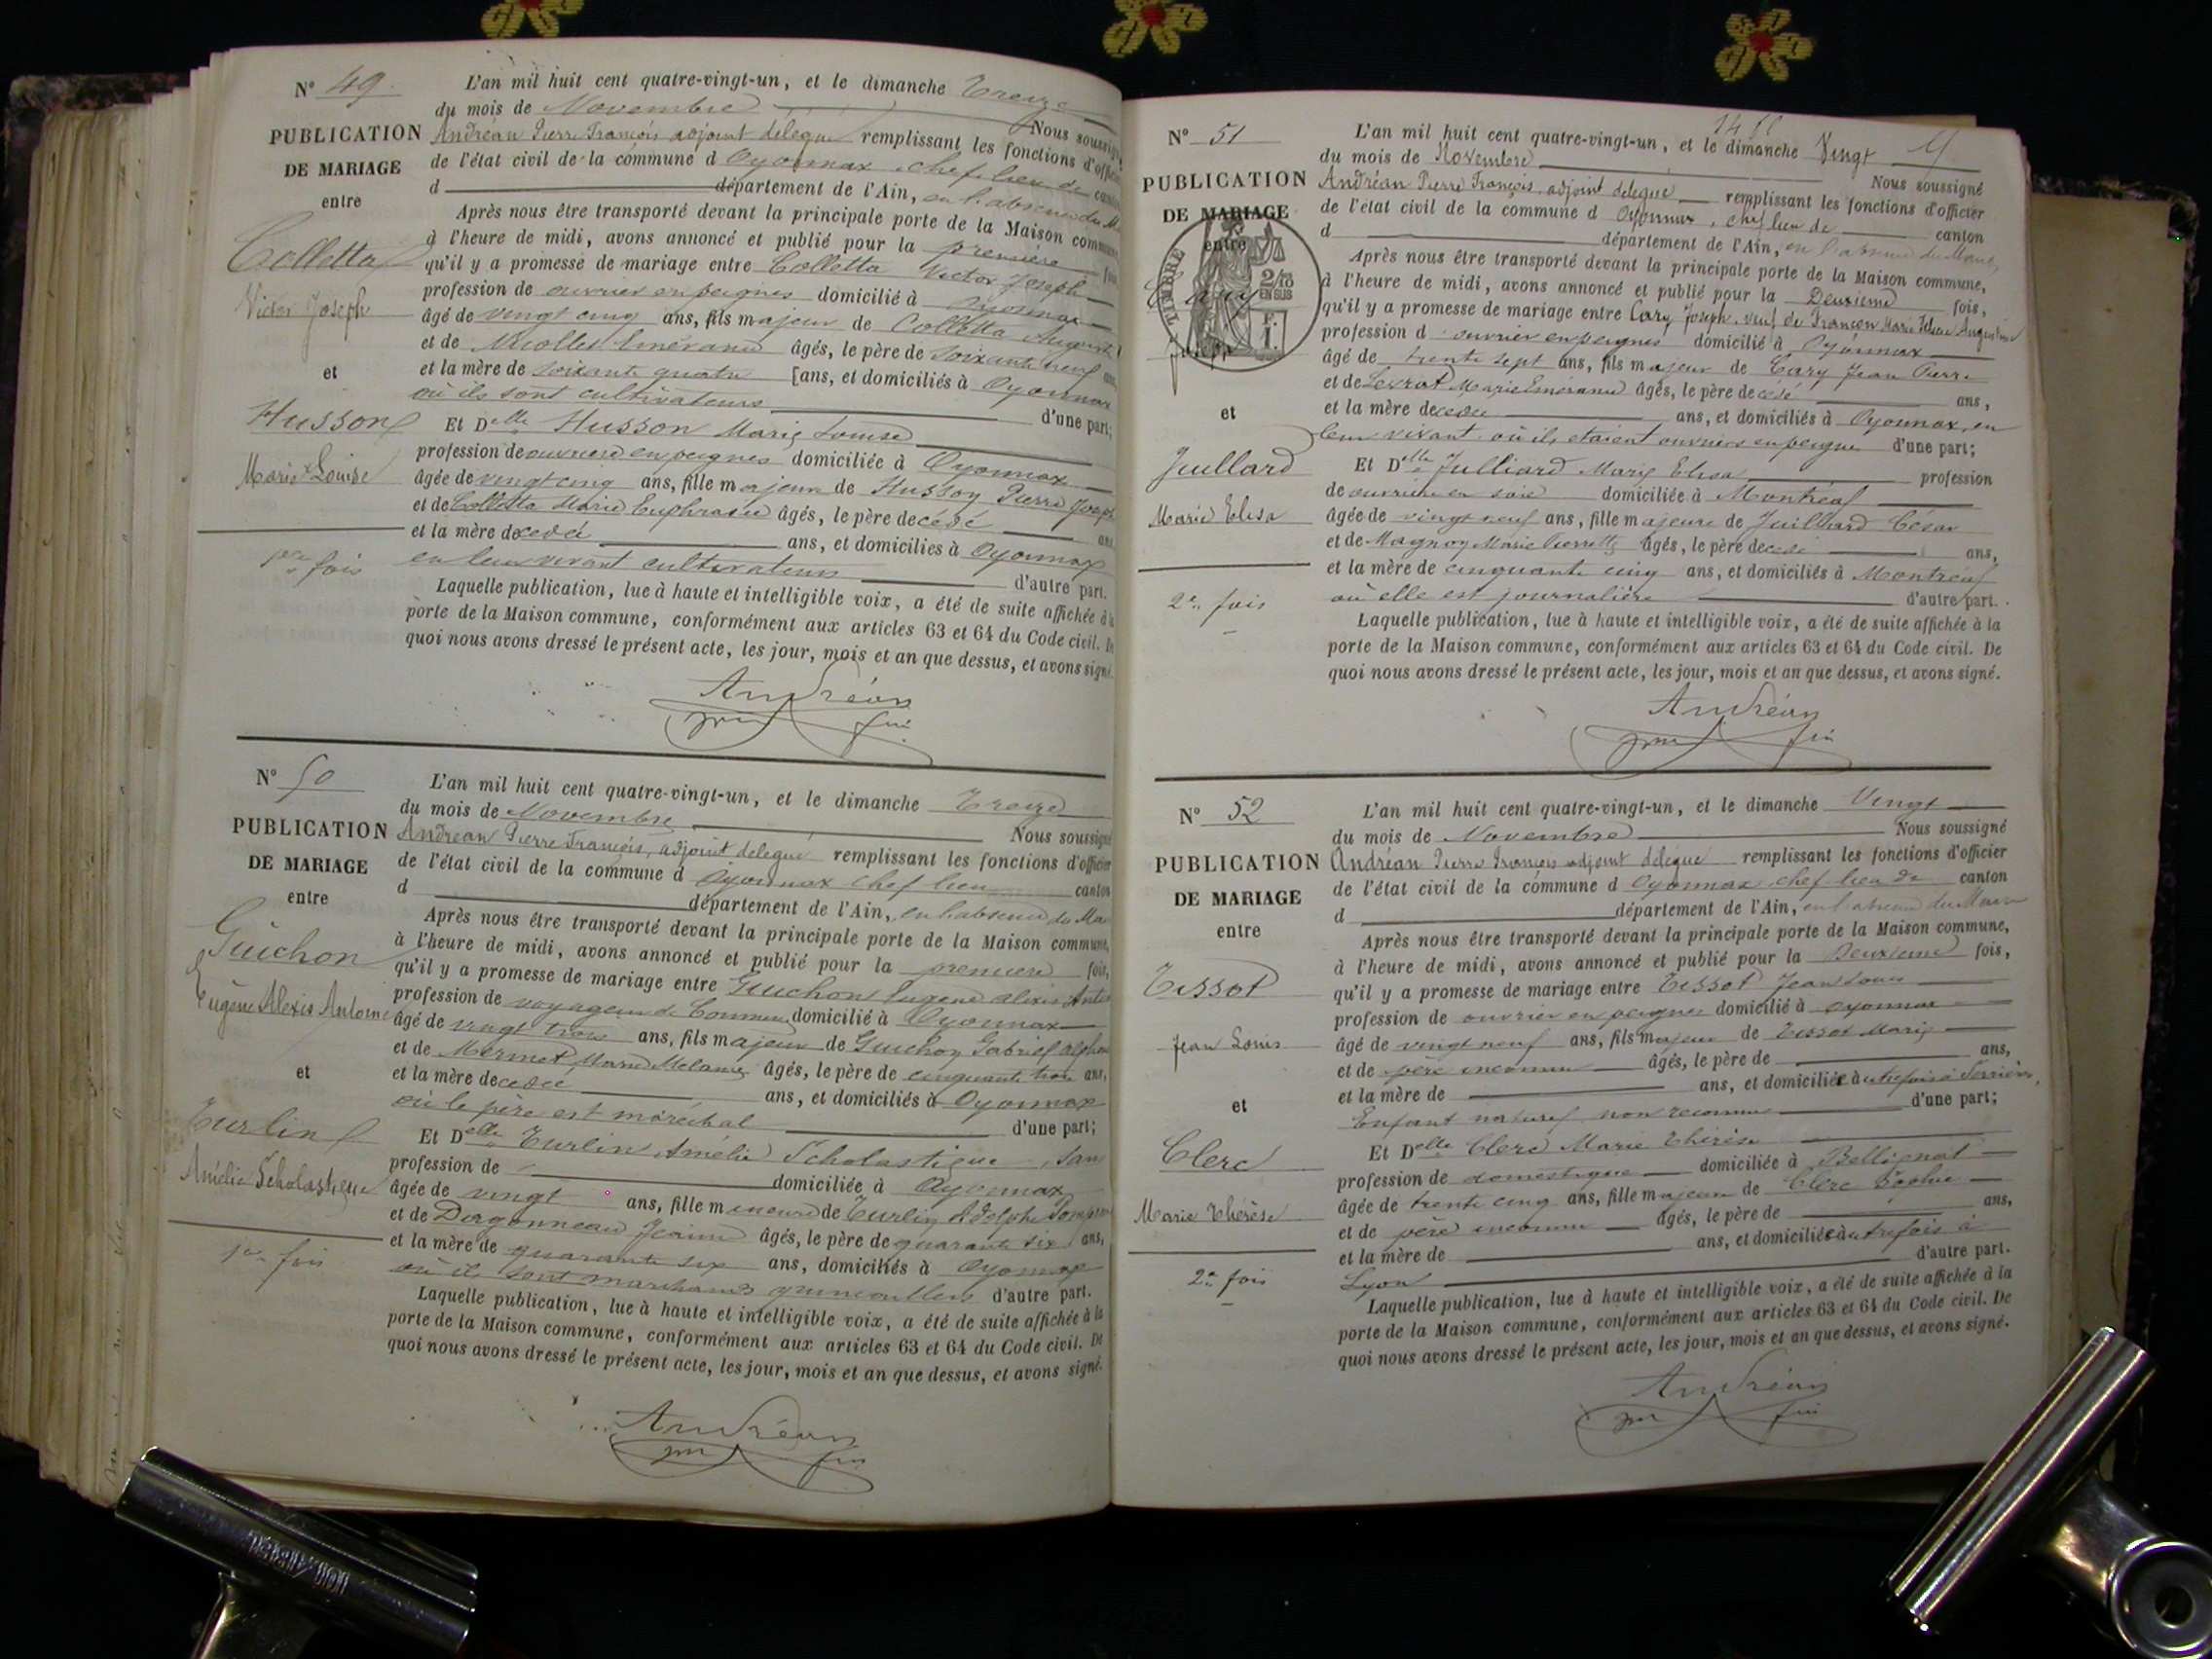 N° 49.
PUBLICATION
DE MARIAGE
entre
Colletta
Victor Joseph
et
Husson
Marie Louise
1re fois
L'an mil huit cent quatre-vingt-un, et le dimanche Treize
du mois de Novembre Nous soussigné
Andréan Pierre François adjoint délégué remplissant les fonctions d'officier
de l'état civil de la commune d Oyonnax, chef lieu de canton
d département de l'Ain, en l'absence du M
Après nous être transporté devant la principale porte de la Maison commune,
à l'heure de midi, avons annoncé et publié pour la première fois
qu'il y a promesse de mariage entre Colletta Victor Joseph
profession de ouvrier en peignes domicilié à Oyonnax
âgé de vingt cinq ans, fils majeur de Colletta August
et de Nicollet Emérance âgés, le père de soixante neuf ans,
et la mère de soixante quatre [ans, et domiciliés à Oyonnax
où ils sont cultivateurs d'une part;
Et Delle Husson Marie Louise
profession de ouvrière en peignes domiciliée à Oyonnax
âgée de vingt cinq ans, fille majeure de Husson Pierre Joseph
et de Colletta Marie Euphrasie âgés, le père décédé ans
et la mère décédée ans, et domiciliés à Oyonnax
en leur vivant cultivateurs d'autre part.
Laquelle publication, lue à haute et intelligible voix, a été de suite affichée à la
porte de la Maison commune, conformément aux articles 63 et 64 du Code civil. De
quoi nous avons dressé le présent acte, les jour, mois et an que dessus, et avons signé.
Andréan
N° 50
PUBLICATION
DE MARIAGE
entre
Guichon
Eugène Alexis Antoine
et
Turlin
Amélie Scholastique
1re fois
L'an mil huit cent quatre-vingt-un, et le dimanche Treize
du mois de Novembre Nous soussigné
Andréan Pierre François, adjoint délégué remplissant les fonctions d'officier
de l'état civil de la commune d Oyonnax chef lieu canton
d département de l'Ain, en l'absence du Ma
Après nous être transporté devant la principale porte de la Maison commune,
à l'heure de midi, avons annoncé et publié pour la première fois,
qu'il y a promesse de mariage entre Guichon Eugène Alexis Antoi
profession de voyageur de Commerce domicilié à Oyonnax
âgé de vingt trois ans, fils majeur de Guichon Gabriel Alphon
et de Mermet Marie Melanie âgés, le père de cinquante trois ans,
et la mère décédée ans, et domiciliés à Oyonnax
où le père est maréchal d'une part;
Et Delle Turlin Amélie Scholastique, san
profession de domiciliée à Oyonnax
âgée de vingt ans, fille mineure de Turlin Adolphe
et de Dagonneau Jeanne âgés, le père de quarante six ans,
et la mère de quarante six ans, domiciliés à Oyonnax
où ils sont marchands quincaillers d'autre part.
Laquelle publication, lue à haute et intelligible voix, a été de suite affichée à la
porte de la Maison commune, conformément aux articles 63 et 64 du Code civil. De
quoi nous avons dressé le présent acte, les jour, mois et an que dessus, et avons signé.
Andréan
N° 51
PUBLICATION
DE MARIAGE
entre
TIMBRE
2/10
EN SUS
F.
1.
Cary
Joseph
et
Juillard
Marie Elisa
2e fois
L'an mil huit cent quatre-vingt-un, et le dimanche Vingt
du mois de Novembre Nous soussigné
Andréan Pierre François, adjoint délégué remplissant les fonctions d'officier
de l'état civil de la commune d Oyonnax, chef lieu de canton
d département de l'Ain, en l'absence du Maire,
Après nous être transporté devant la principale porte de la Maison commune,
à l'heure de midi, avons annoncé et publié pour la Deuxième fois,
qu'il y a promesse de mariage entre Cary Joseph, veuf de Françon Marie Augustine
profession d ouvrier en peignes domicilié à Oyonnax
âgé de trente sept ans, fils majeur de Cary Jean Pierre
et de Levrat Marie Emérance âgés, le père décédé ans,
et la mère décédée ans, et domiciliés à Oyonnax, en
leur vivant où ils étaient ouvriers en peignes d'une part;
Et Delle Julliard Marie Elisa profession
de ouvrière en soie domiciliée à Montréal
âgée de vingt neuf ans, fille majeure de Juillard César
et de Magnon Marie Pierrette âgés, le père décédé ans,
et la mère de cinquante cinq ans, et domiciliés à Montréal
où elle est journalière d'autre part.
Laquelle publication, lue à haute et intelligible voix, a été de suite affichée à la
porte de la Maison commune, conformément aux articles 63 et 64 du Code civil. De
quoi nous avons dressé le présent acte, les jour, mois et an que dessus, et avons signé.
Andréan
N° 52
PUBLICATION
DE MARIAGE
entre
Tissot
Jean Louis
et
Clerc
Marie Thérèse
2e fois
L'an mil huit cent quatre-vingt-un, et le dimanche Vingt
du mois de Novembre Nous soussigné
Andréan Pierre François adjoint délégué remplissant les fonctions d'officier
de l'état civil de la commune d Oyonnax chef lieu de canton
d département de l'Ain, en l'absence du Maire
Après nous être transporté devant la principale porte de la Maison commune,
à l'heure de midi, avons annoncé et publié pour la Deuxième fois,
qu'il y a promesse de mariage entre Tissot Jean Louis
profession de ouvrier en peignes domicilié à Oyonnax
âgé de vingt neuf ans, fils majeur de Tissot Marie
et de père inconnu âgés, le père de ans,
et la mère de ans, et domiciliée à autrefois à Serrières,
Enfant naturel non reconnu d'une part;
Et Delle Clerc Marie Thérèse
profession de domestique domiciliée à Bellignat
âgée de trente cinq ans, fille majeure de Clerc Sophie
et de père inconnu âgés, le père de ans,
et la mère de ans, et domiciliée à autrefois à
Lyon d'autre part.
Laquelle publication, lue à haute et intelligible voix, a été de suite affichée à la
porte de la Maison commune, conformément aux articles 63 et 64 du Code civil. De
quoi nous avons dressé le présent acte, les jour, mois et an que dessus, et avons signé.
Andréan